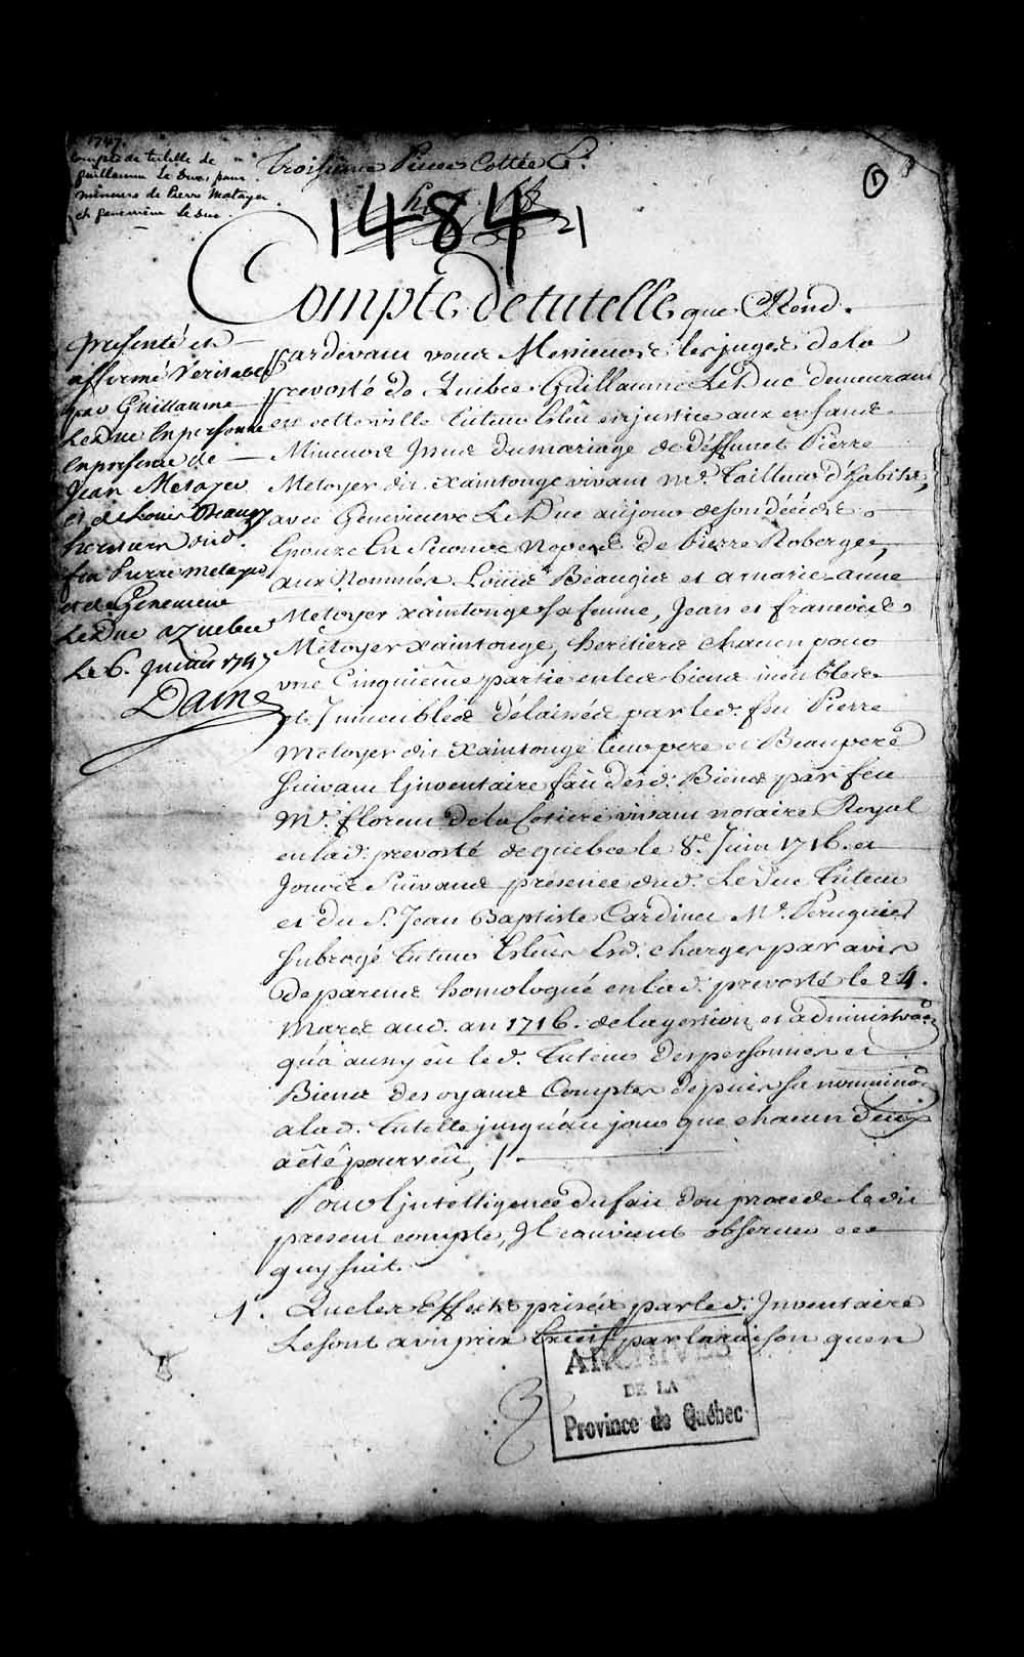 1747.
Compte de tutelle de
Guillaume Le Duc, pour
mineurs de Pierre Metayer
et Genevieve Le Duc.
Troisieme Piece Cottée C.
1484
21
Compte de tutelle que Rend
pardevant vous Messieurs les juges de la
prevosté de Quebec Guillaume Le Duc demeurant
en cette ville tuteur Eslû en justice aux enfans
Mineurs Issus du mariage de deffunct Pierre
Metoyer dit Xaintonge vivant Me. Tailleur d'habits,
avec Genevieve Le Duc au jour de son décéds
Epouze En Seconde Noces de Pierre Roberge,
aux Nommés Louis Beaugis et a marie anne
Metoyer Xaintonge sa femme, Jean et francoise
Metoyer Xaintonge, heritiers chacun pour
une Cinquiême partie en les biens meubles
et Immeubles délaissés par led. feu Pierre
Metoyer dit Xaintonge leur pere et Beaupere
Suivant l'jnventaire fait desd. Biens par feu
Me. florent de la Cetiere vivant notaire Royal
en lad. prevosté de quebec le 8e. Juin 1716. et
Jours Suivans presence dud. Le Duc tuteur
et du Sr. Jean Baptiste Cardinet Me. Peruquier
Subrogé tuteur Eslûs Esd. charges par avis
de parens homologué en lad. prevosté le 24.
Mars aud. an 1716. de la gestion et administraon
qu'a auny eû led. tuteur des personnes et
Biens des oyans Compte depuis sa nominaon
a lad. tutelle jusqu'au jour que chacun deux
a été pourvëu, /.
Pour l'jntelligence du fait dou procede le dit
present compte, Il convient observer ce
quy suit.
1. Que les Effects prisés par led. Inventaire
Le sont a vil prix Excessif par la raison quen
presenté et
affirmé Veritable
par Guillaume
LeDuc En personne
En presence de
Jean Metayer
et de Louis Beaugy
heritiers dud.
feu Pierre metayer
et de Genevieve
LeDuc a Quebec
Le 6. Juin 1747
Daine
ARCHIVES
DE LA
Province de Québec